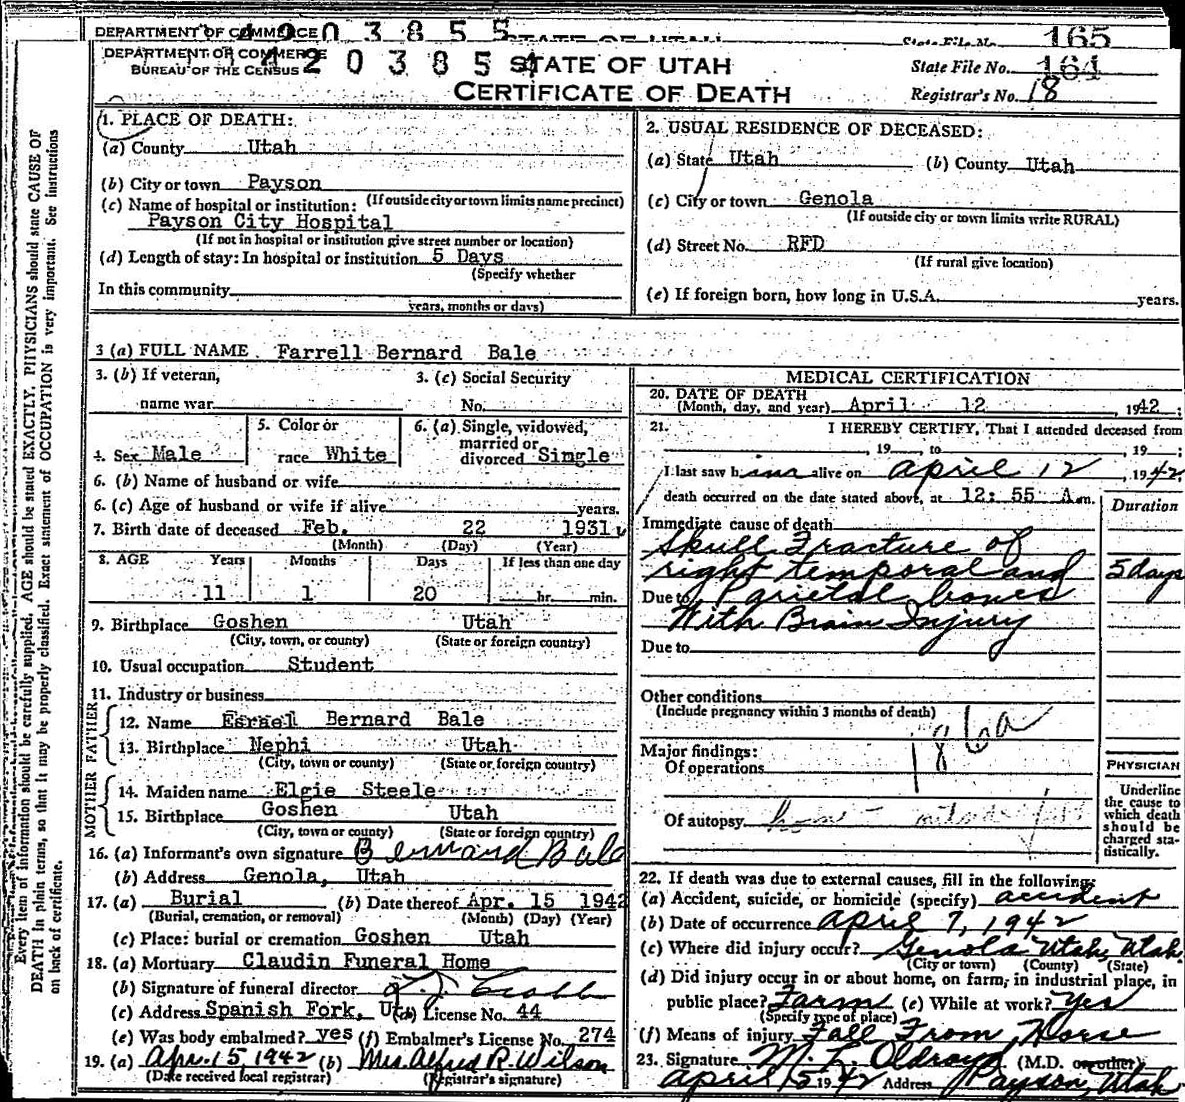 DEPARTMENT OF COMMERCE 4 2 0 3 8 5 5 STATE OF UTAH State File No. 165
DEPARTMENT OF COMMERCE 4 2 0 3 8 5 4 STATE OF UTAH State File No. 164
BUREAU OF THE CENSUS
CERTIFICATE OF DEATH Registrar's No. 18
Every item of information should be carefully supplied. AGE should be stated EXACTLY. PHYSICIANS should state CAUSE OF
DEATH in plain terms, so that it may be properly classified. Exact statement of OCCUPATION is very important. See instructions
on back of certificate.
1. PLACE OF DEATH:
(a) County Utah
(b) City or town Payson
(If outside city or town limits name precinct)
(c) Name of hospital or institution:
Payson City Hospital
(If not in hospital or institution give street number or location)
(d) Length of stay: In hospital or institution 5 Days
(Specify whether
In this community
years, months or days)
2. USUAL RESIDENCE OF DECEASED:
(a) State Utah (b) County Utah
(c) City or town Genola
(If outside city or town limits write RURAL)
(d) Street No. RFD
(If rural give location)
(e) If foreign born, how long in U.S.A. years.
3 (a) FULL NAME Farrell Bernard Bale
3. (b) If veteran, name war
3. (c) Social Security No.
4. Sex Male
5. Color or race White
6. (a) Single, widowed, married or divorced Single
6. (b) Name of husband or wife
6. (c) Age of husband or wife if alive years.
7. Birth date of deceased Feb. 22 1931
(Month) (Day) (Year)
8. AGE Years Months Days If less than one day
11 1 20 hr. min.
9. Birthplace Goshen Utah
(City, town, or county) (State or foreign country)
10. Usual occupation Student
11. Industry or business
FATHER
12. Name Esrael Bernard Bale
13. Birthplace Nephi Utah
(City, town or county) (State or foreign country)
MOTHER
14. Maiden name Elgie Steele
15. Birthplace Goshen Utah
(City, town or county) (State or foreign country)
16. (a) Informant's own signature Bernard Bale
(b) Address Genola, Utah
17. (a) Burial (b) Date thereof Apr. 15 1942
(Burial, cremation, or removal) (Month) (Day) (Year)
(c) Place: burial or cremation Goshen Utah
18. (a) Mortuary Claudin Funeral Home
(b) Signature of funeral director
(c) Address Spanish Fork, Ut. License No. 44
(e) Was body embalmed? yes (f) Embalmer's License No. 274
19. (a) Apr. 15, 1942 (b) Mrs. Alfred R. Wilson
(Date received local registrar) (Registrar's signature)
MEDICAL CERTIFICATION
20. DATE OF DEATH
(Month, day, and year) April 12, 1942;
21. I HEREBY CERTIFY, That I attended deceased from
, 19 , to , 19 ;
I last saw h im alive on april 12, 1942;
death occurred on the date stated above, at 12:55 A.m.
Duration
Immediate cause of death
Skull Fracture of
right temporal and 5 days
Due to Parietal bones
With Brain Injury
Due to
Other conditions
(Include pregnancy within 3 months of death)
186a
Major findings:
Of operations
Of autopsy
PHYSICIAN
Underline
the cause to
which death
should be
charged sta-
tistically.
22. If death was due to external causes, fill in the following:
(a) Accident, suicide, or homicide (specify) accident
(b) Date of occurrence april 7, 1942
(c) Where did injury occur? Genola Utah, Utah.
(City or town) (County) (State)
(d) Did injury occur in or about home, on farm, in industrial place, in
public place? Farm (e) While at work? Yes
(Specify type of place)
(f) Means of injury Fall From Horse
23. Signature M. L. Oldroyd (M.D. or other)
april 15 1942 Address Payson, Utah